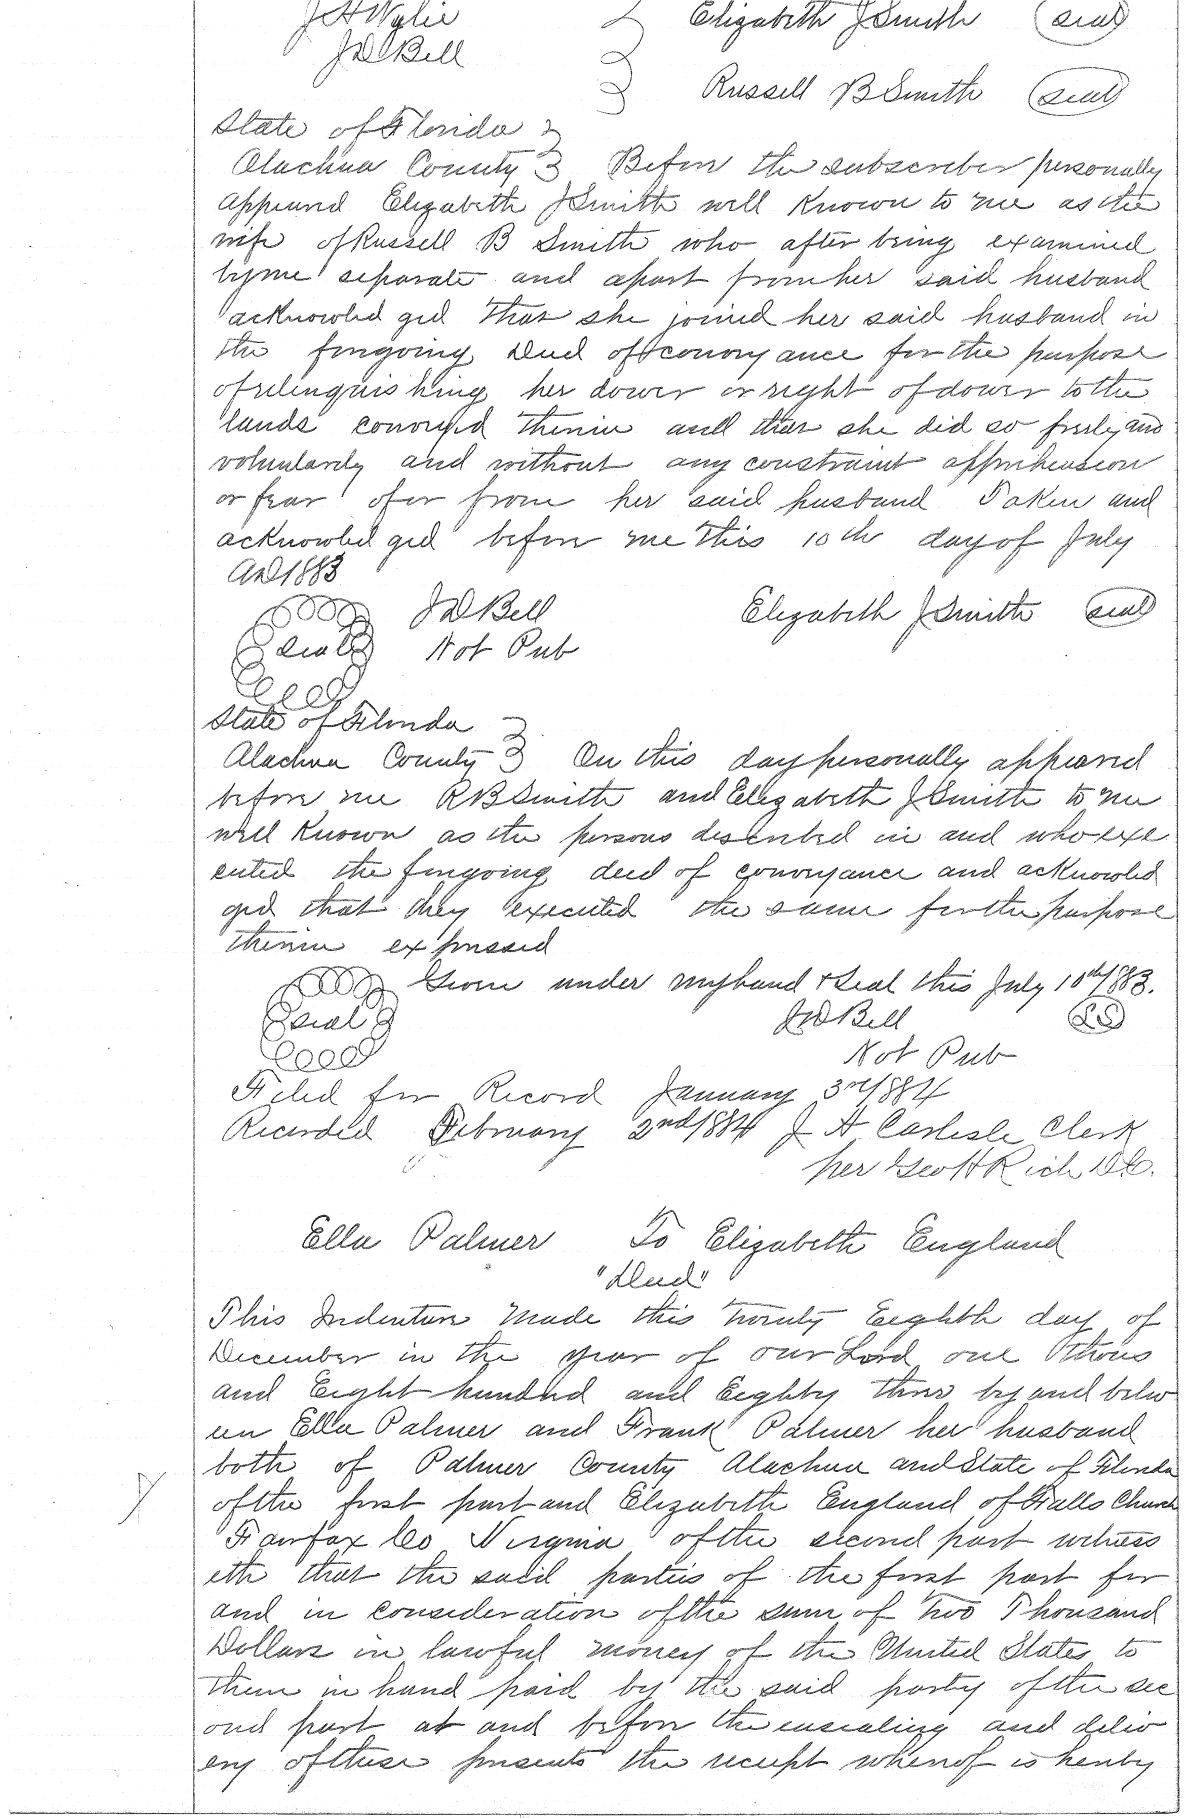 J H Wylie Elizabeth J Smith (seal)
J D Bell
Russell B Smith (seal)
State of Florida
Alachua County Before the subscriber personally
appeared Elizabeth J Smith well Known to me as the
wife of Russell B Smith who after being examined
by me separate and apart from her said husband
acknowled ged that she joined her said husband in
the foregoing Deed of conveyance for the purpose
of relinquishing her dower or right of dower to the
lands conveyed therein and that she did so freely and
voluntarily and without any constraint apprehension
or fear of or from her said husband Taken and
acknowled ged before me this 10th day of July
AD 1883
J D Bell Elizabeth J Smith (seal)
Seal Not Pub
State of Florida
Alachua County On this day personally appeared
before me R B Smith and Elizabeth J Smith to me
well Known as the persons described in and who exe
cuted the foregoing deed of conveyance and acknowled
ged that they executed the same for the purpose
therein expressed
Given under my hand & Seal this July 10th/883.
Seal J D Bell (LS)
Not Pub
Filed for Record January 3rd/884
Recorded February 2nd/884 J H Carlisle Clerk
per Geo H Rich D.C.
Ella Palmer To Elizabeth England
"Deed"
This Indenture Made this Twenty Eighth day of
December in the year of our Lord one thous
and Eight hundred and Eighty three by and betw
een Ella Palmer and Frank Palmer her husband
both of Palmer County Alachua and State of Florida
of the first part and Elizabeth England of Falls Church
Fairfax Co Virginia of the second part witness
eth that the said parties of the first part for
and in consideration of the sum of Two Thousand
Dollars in lawful money of the United States to
them in hand paid by the said party of the sec
ond part at and before the ensealing and deliv
ery of these presents the receipt whereof is hereby